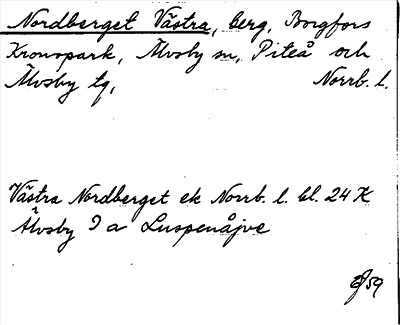 Nordberget Västra, berg, Borgfors
Kronopark, Älvsby sn, Piteå och
Älvsby tg, Norrb. l.
Västra Nordberget ek Norrb. l. bl. 24 K
Älvsby I a Luspenåjve
59